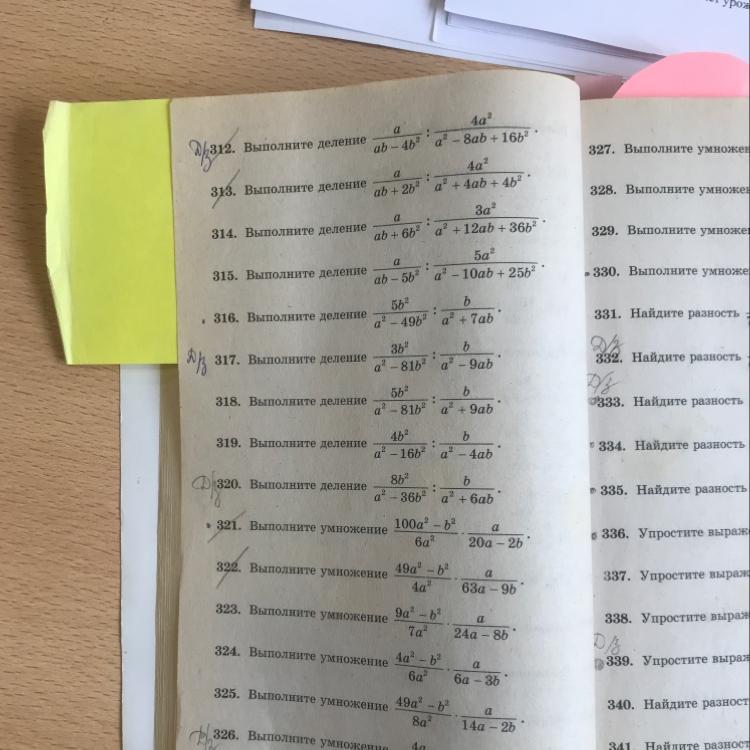 Д/з 312. Выполните деление a/(ab − 4b²) : 4a²/(a² − 8ab + 16b²).
313. Выполните деление a/(ab + 2b²) : 4a²/(a² + 4ab + 4b²).
314. Выполните деление a/(ab + 6b²) : 3a²/(a² + 12ab + 36b²).
315. Выполните деление a/(ab − 5b²) : 5a²/(a² − 10ab + 25b²).
316. Выполните деление 5b²/(a² − 49b²) : b/(a² + 7ab).
Д/з 317. Выполните деление 3b²/(a² − 81b²) : b/(a² − 9ab).
318. Выполните деление 5b²/(a² − 81b²) : b/(a² + 9ab).
319. Выполните деление 4b²/(a² − 16b²) : b/(a² − 4ab).
Д/з 320. Выполните деление 8b²/(a² − 36b²) : b/(a² + 6ab).
321. Выполните умножение (100a² − b²)/6a² · a/(20a − 2b).
322. Выполните умножение (49a² − b²)/4a² · a/(63a − 9b).
323. Выполните умножение (9a² − b²)/7a² · a/(24a − 8b).
324. Выполните умножение (4a² − b²)/6a² · a/(6a − 3b).
325. Выполните умножение (49a² − b²)/8a² · a/(14a − 2b).
Д/з 326. Выполните умножение 4a
327. Выполните умножен
328. Выполните умножен
329. Выполните умноже
330. Выполните умноже
331. Найдите разность
Д/з
332. Найдите разность
Д/з
333. Найдите разность
334. Найдите разность
335. Найдите разность
336. Упростите выраж
337. Упростите выраж
338. Упростите выраж
Д/з
339. Упростите выраж
340. Найдите разност
341. Найдите разност